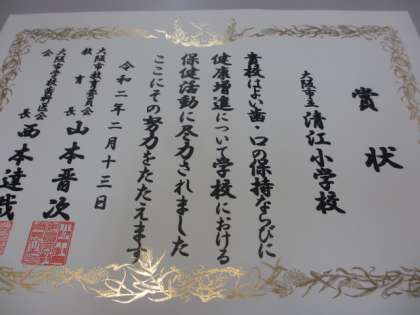 賞状
大阪市立 清江小学校
貴校はよい歯・口の保持ならびに
健康増進について学校における
保健活動に尽力されました
ここにその努力をたたえます
令和二年二月十三日
大阪市教育委員会
教育長 山本晋次
大阪市学校歯科医会
会長 西本達哉